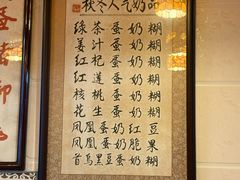 秋冬人气奶品
绿茶蛋奶糊
姜汁蛋奶糊
红杞蛋奶糊
红莲蛋奶糊
核桃蛋奶糊
花生蛋奶糊
凤凰蛋奶红豆
凤凰蛋奶脆果
首乌黑豆蛋奶糊